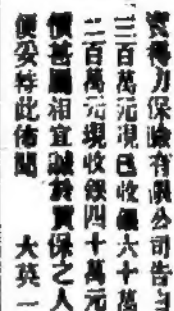 寶得力保險有限公司告白
三百萬元現已收銀六十萬
二百萬元現收銀四十萬元
價甚關相宜誠於買保之人
便妥特此佈聞　大英一